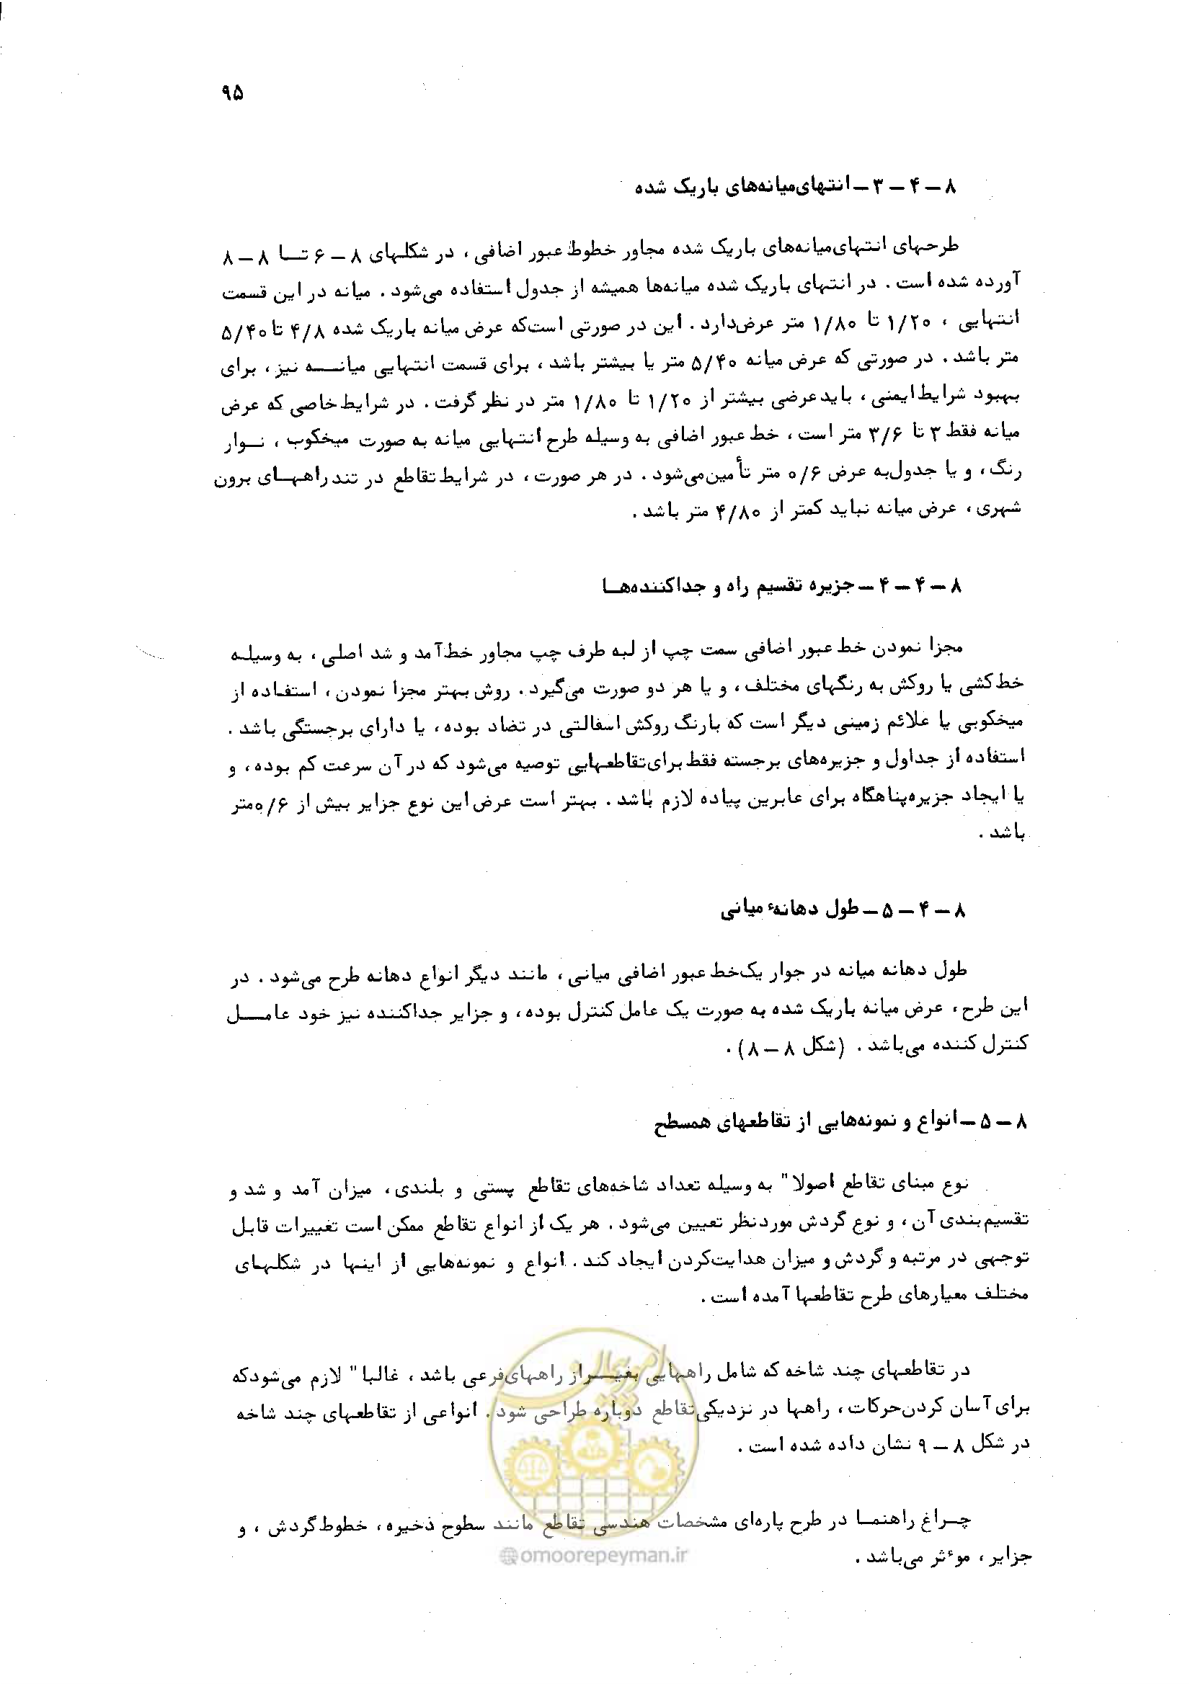 ۹۵
۸ – ۴ – ۳ – انتهای میانه‌های باریک شده
طرحهای انتهای میانه‌های باریک شده مجاور خطوط عبور اضافی ، در شکلهای ۸ – ۶ تــا ۸ – ۸
آورده شده است . در انتهای باریک شده میانه‌ها همیشه از جدول استفاده می‌شود . میانه در این قسمت
انتهایی ، ۱/۲۰ تا ۱/۸۰ متر عرض دارد . این در صورتی است که عرض میانه باریک شده ۴/۸ تا ۵/۴۰
متر باشد . در صورتی که عرض میانه ۵/۴۰ متر یا بیشتر باشد ، برای قسمت انتهایی میانـــه نیز ، برای
بهبود شرایط ایمنی ، باید عرضی بیشتر از ۱/۲۰ تا ۱/۸۰ متر در نظر گرفت . در شرایط خاصی که عرض
میانه فقط ۳ تا ۳/۶ متر است ، خط عبور اضافی به وسیله طرح انتهایی میانه به صورت میخکوب ، نــوار
رنگ ، و یا جدول به عرض ۰/۶ متر تأمین می‌شود . در هر صورت ، در شرایط تقاطع در تند راههــای برون
شهری ، عرض میانه نباید کمتر از ۴/۸۰ متر باشد .
۸ – ۴ – ۴ – جزیره تقسیم راه و جداکننده‌هــا
مجزا نمودن خط عبور اضافی سمت چپ از لبه طرف چپ مجاور خط آمد و شد اصلی ، به وسیلـه
خط کشی یا روکش به رنگهای مختلف ، و یا هر دو صورت می‌گیرد . روش بهتر مجزا نمودن ، استفـاده از
میخکوبی یا علائم زمینی دیگر است که با رنگ روکش اسفالتی در تضاد بوده ، یا دارای برجستگی باشد .
استفاده از جداول و جزیره‌های برجسته فقط برای تقاطعهایی توصیه می‌شود که در آن سرعت کم بوده ، و
یا ایجاد جزیره پناهگاه برای عابرین پیاده لازم باشد . بهتر است عرض این نوع جزایر بیش از ۰/۶ متر
باشد .
۸ – ۴ – ۵ – طول دهانهٔ میانی
طول دهانه میانه در جوار یک خط عبور اضافی میانی ، مانند دیگر انواع دهانه طرح می‌شود . در
این طرح ، عرض میانه باریک شده به صورت یک عامل کنترل بوده ، و جزایر جداکننده نیز خود عامــل
کنترل کننده می‌باشد . (شکل ۸ – ۸) .
۸ – ۵ – انواع و نمونه‌هایی از تقاطعهای همسطح
نوع مبنای تقاطع اصولا" به وسیله تعداد شاخه‌های تقاطع پستی و بلندی ، میزان آمد و شد و
تقسیم بندی آن ، و نوع گردش مورد نظر تعیین می‌شود . هر یک از انواع تقاطع ممکن است تغییرات قابل
توجهی در مرتبه و گردش و میزان هدایت کردن ایجاد کند . انواع و نمونه‌هایی از اینها در شکلهـای
مختلف معیارهای طرح تقاطعها آمده است .
در تقاطعهای چند شاخه که شامل راههایی بغیـــر از راههای فرعی باشد ، غالبا" لازم می‌شود که
برای آسان کردن حرکات ، راهها در نزدیکی تقاطع دوباره طراحی شود . انواعی از تقاطعهای چند شاخه
در شکل ۸ – ۹ نشان داده شده است .
چــراغ راهنمــا در طرح پاره‌ای مشخصات هندسی تقاطع مانند سطوح ذخیره ، خطوط گردش ، و
جزایر ، موءثر می‌باشد .
@omoorepeyman.ir